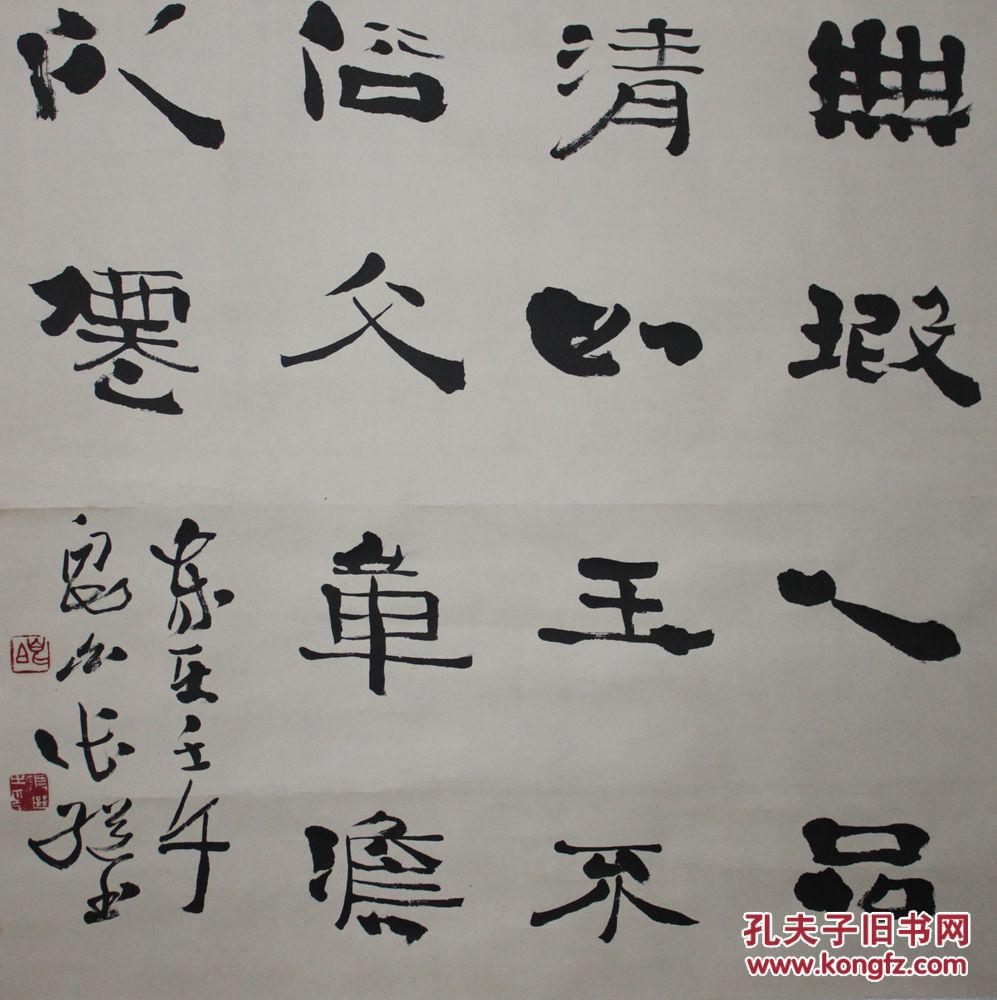 無瑕人品
清如玉不
俗文章澹
似僊
壬午
張继书
孔夫子旧书网
www.kongfz.com